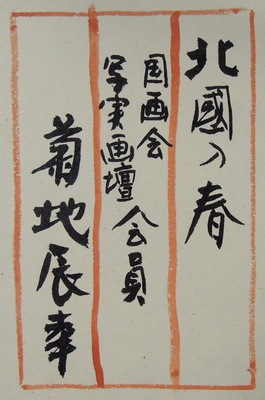 北國ノ春
国画会
写実画壇会員
菊地辰幸